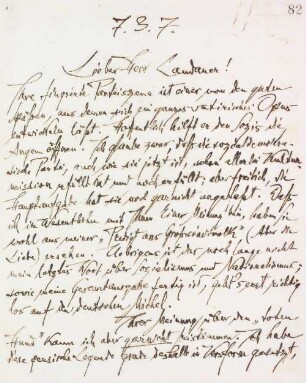 82
7. 3. 7.
Lieber Herr Landauer!
Ihre fingierte Parteiszene ist einer von den guten
aus denen sich ein ganzes satirisches Opus
entwickeln läßt. Hoffentlich hilft er den Sozis die
Augen öffnen. Ich glaube zwar, daß die sozialdemokra-
Partei, auch wie sie jetzt ist, schon allerlei
mission erfüllt hat und noch erfüllt; aber freilich, die
Hauptaufgabe hat sie noch garnicht angepackt. Daß
ich im Wesentlichen mit Ihnen Einer Meinung bin, haben Sie
wohl aus meiner "Predigt ans Großstadtvolk" (Aber die
Liebe) ersehen. Uebrigens ist das noch lange nicht
mein letztes Wort über Sozialismus und Nationalismus;
sowie meine Gesamtausgabe fertig ist, geht's erst richtig
los auf den deutschen Michel.
Ihrer Meinung über den "roten
Hund" kann ich aber garnicht zustimmen. Ich habe
diese Legende grade deshalb in Versform gesetzt,